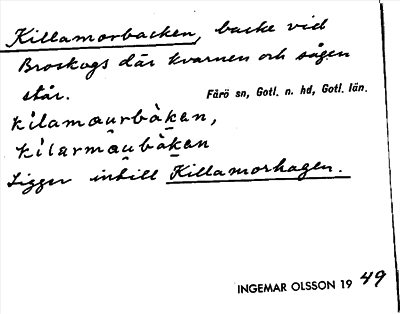 Killamorbacken, backe vid
Broskogs där kvarnen och sågen
står.
Fårö sn, Gotl. n. hd, Gotl. län.
kilamœurbàkan,
kilarmœubàkan
Ligger intill Killamorhagen.
INGEMAR OLSSON 19 49